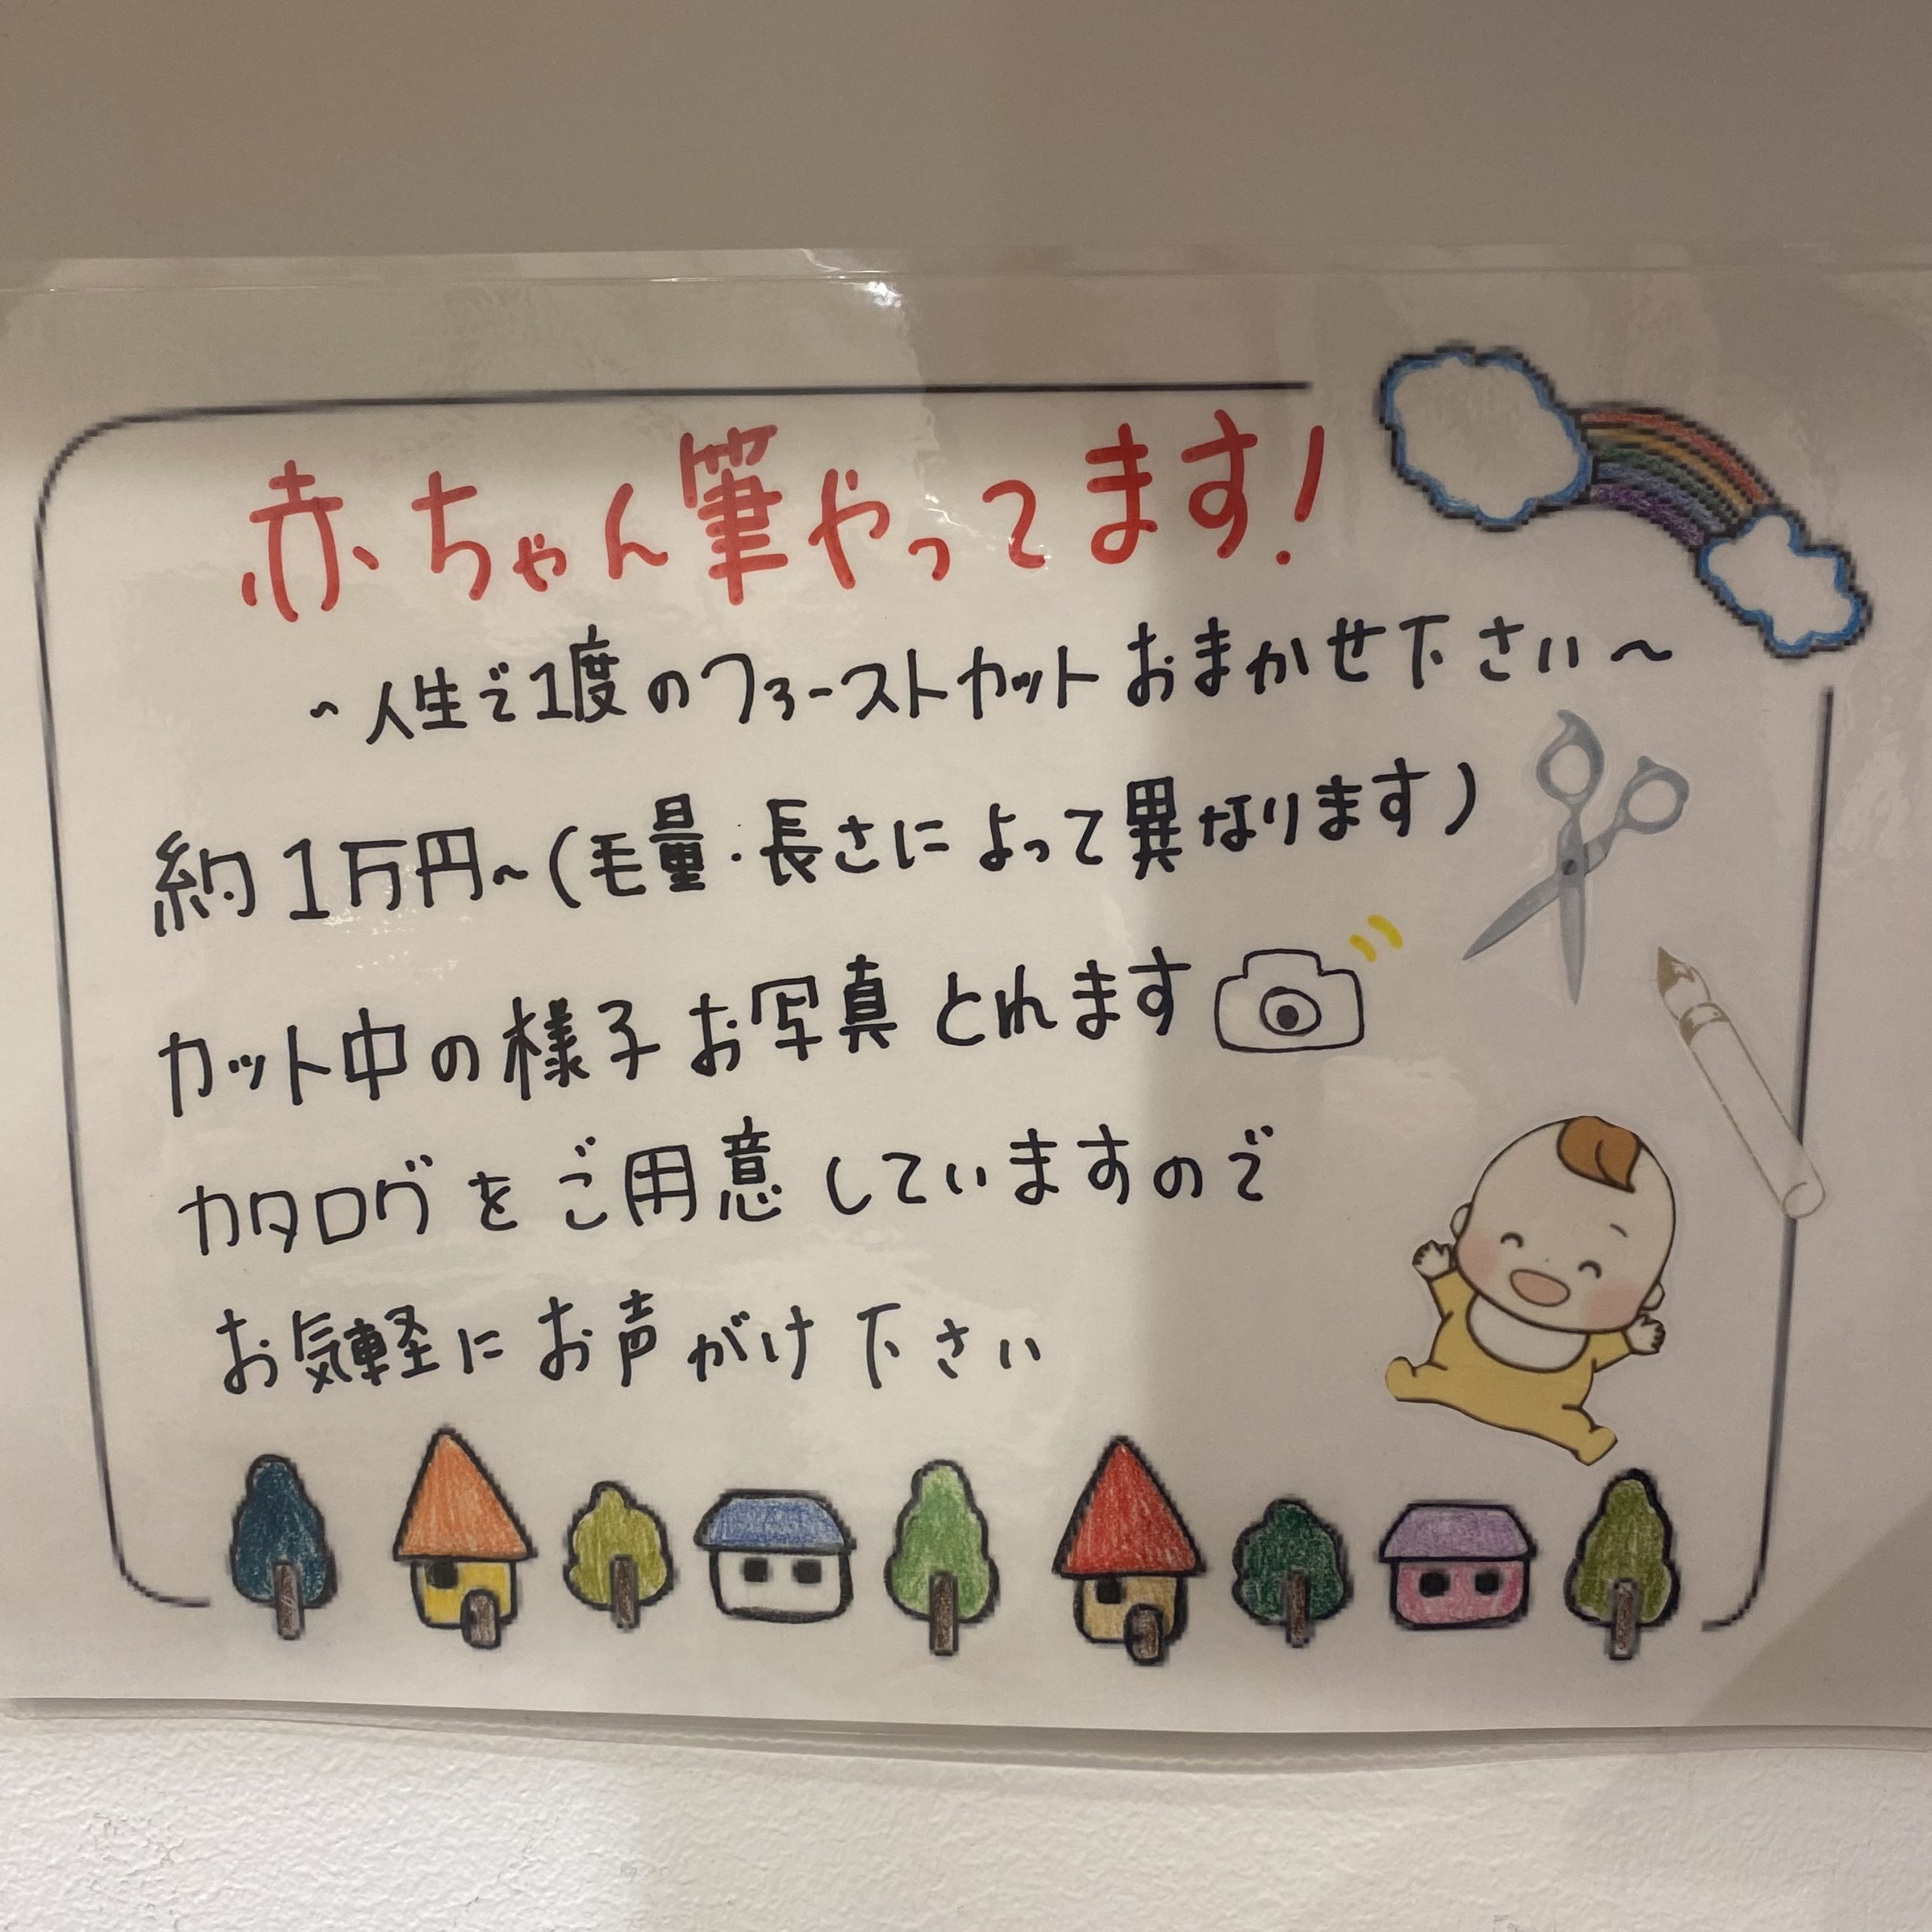 赤ちゃん筆やってます!
~人生で1度のファーストカットおまかせ下さい~
約1万円~(毛量・長さによって異なります)
カット中の様子お写真とれます
カタログをご用意していますので
お気軽にお声がけ下さい